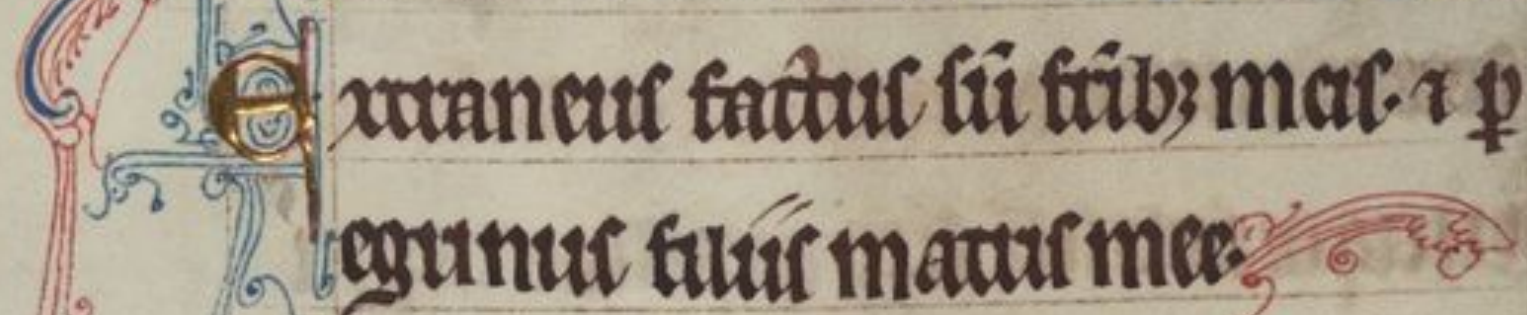 Extraneus factus sū fr̄ib; meis. ⁊ ꝑ
egrinus filiis matris mee.